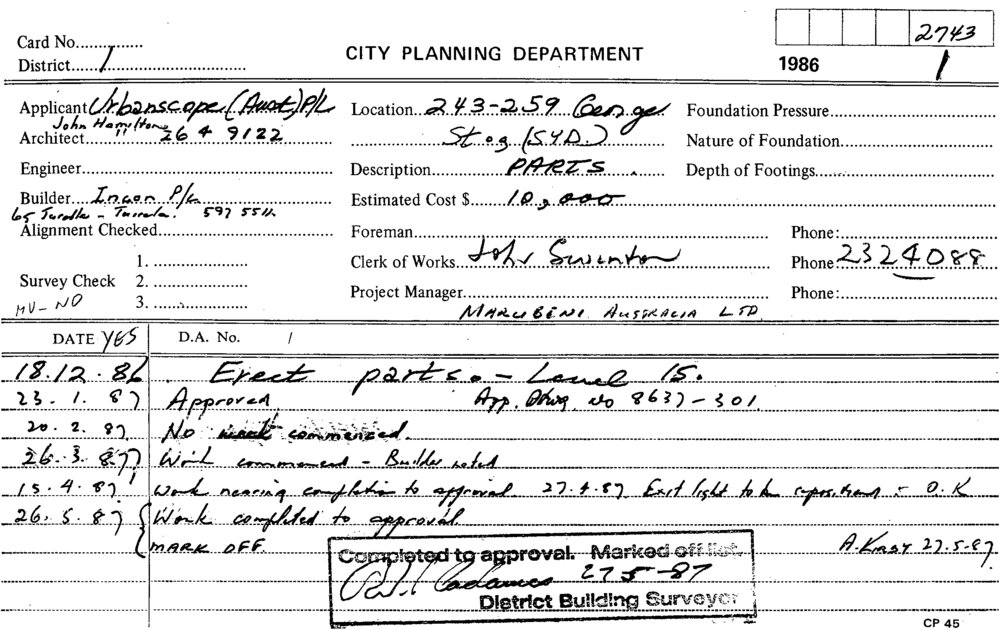 2743
Card No.
District 1
CITY PLANNING DEPARTMENT
1986
1
Applicant Urbanscape (Aust) P/L
Location 243-259 George
Foundation Pressure
John Hamilton
Architect 264 9122
St (SYD.)
Nature of Foundation
Engineer
Description PARTS
Depth of Footings
Builder P/L
Estimated Cost $ 10,000
65 597 5511
Alignment Checked
Foreman
Phone:
1.
Clerk of Works John Swinton
Phone 232 4088
Survey Check 2.
MV- NO
3.
Project Manager
Phone:
MARUBENI AUSTRALIA LTD
DATE YES
D.A. No. /
18.12.86 Erect parts. - Level 15.
23.1.87 Approved App. Dwg No 8637-301
20.2.87 No work commenced.
26.3.87 Work commenced - Builder noted
15.4.87 Work nearing completion to approval 27.4.87 Exit light to be repositioned - O.K
26.5.87 Work completed to approval.
MARK OFF.
A. KIRBY 27.5.87
Completed to approval. Marked off list.
27-5-87
District Building Surveyor
CP 45